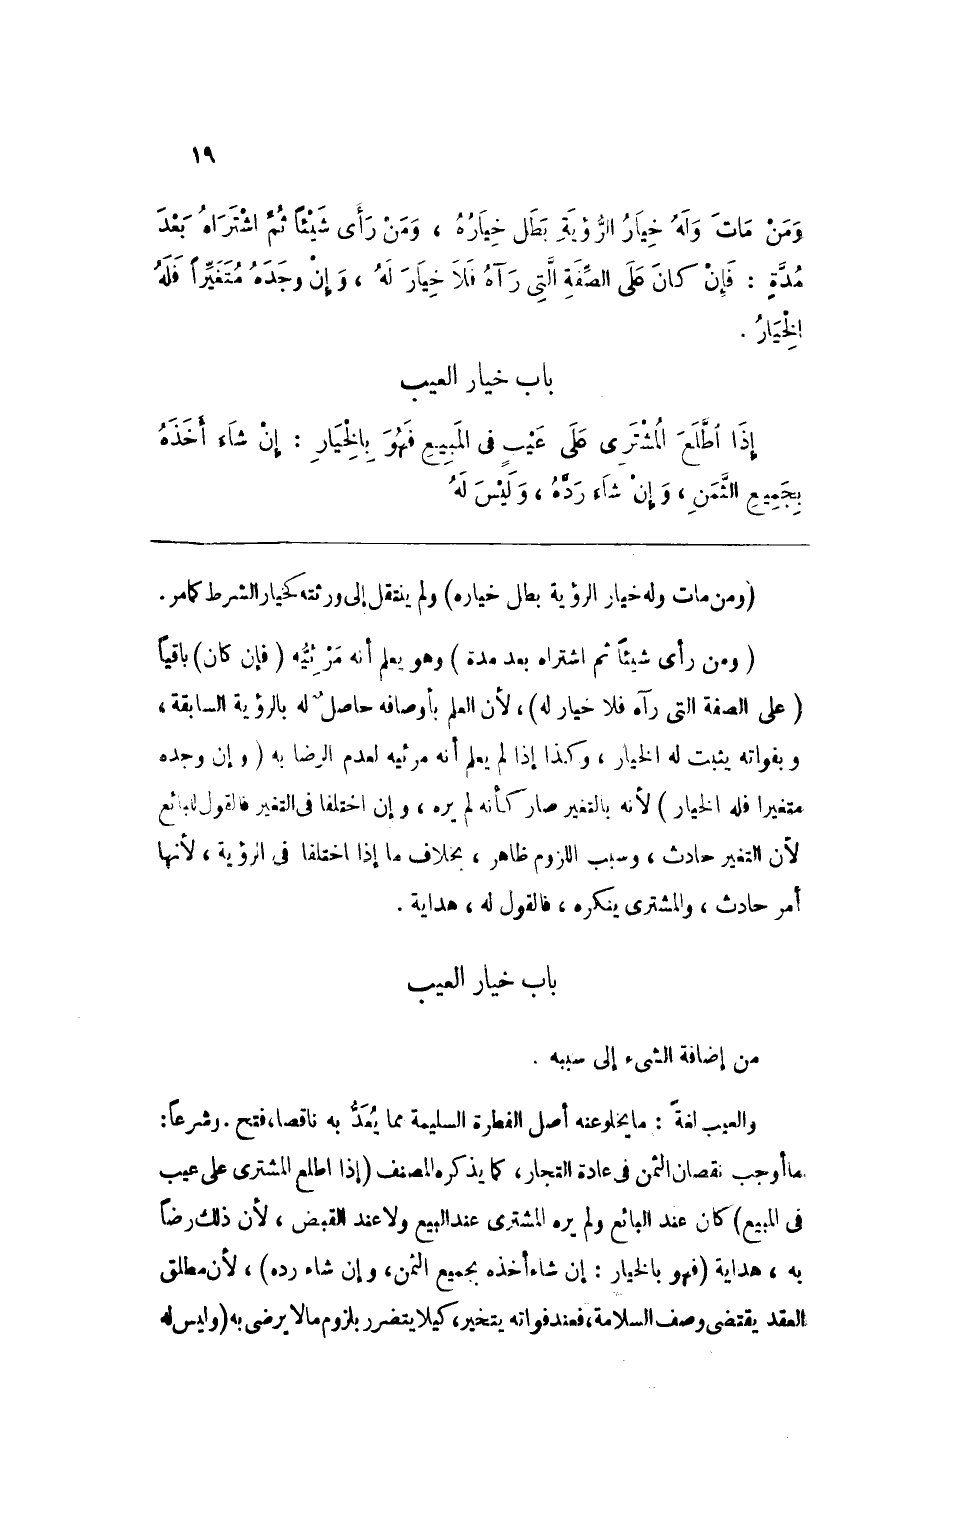 ١٩
وَمَنْ مَاتَ وَلَهُ خِيَارُ الرُّؤْيَةِ بَطَل خِيَارُهُ ، وَمَنْ رَأَى شَيْئاً ثُمَّ اشْتَرَاهُ بَعْدَ
مُدَّةٍ : فَإِنْ كانَ عَلَى الصِّفَةِ الَّتِى رَآهُ فَلاَ خِيَارَ لَهُ ، وَإِنْ وجَدَهُ مُتَغَيِّراً فَلَهُ
الِخْيَارُ .
باب خيار العيب
إِذَا اُطَّلَعَ المُشْتَرِى عَلَى عَيْبٍ فى المَبِيعِ فَهُوَ بِالِخْيَارِ : إِنْ شاَء أَخَذَهُ
بِجَمِيعِ الثَّمَنِ ، وَإِنْ شاَء رَدَّهُ ، وَلَيْسَ لَهُ
(ومن مات وله خيار الرؤية بطل خياره) ولم ينتقل إلى ورثته كخيار الشرط كما مر .
( ومن رأى شيئاً ثم اشتراه بعد مدة ) وهو يعلم أنه مَرْئِيُّه ( فإن كان) باقياً
( على الصفة التى رآه فلا خيار له) ، لأن العلم بأوصافه حاصل له بالرؤية السابقة ،
وبفواته يثبت له الخيار ، وكذا إذا لم يعلم أنه مرئيه لعدم الرضا به ( وإن وجده
متغيرا فله الخيار ) لأنه بالتغير صار كأنه لم يره ، وإن اختلفا فى التغير فالقول للبائع
لأن التغير حادث ، وسبب اللزوم ظاهر ، بخلاف ما إذا اختلفا فى الرؤية ، لأنها
أمر حادث ، والمشترى ينكره ، فالقول له ، هداية .
باب خيار العيب
من إضافة الشىء إلى سببه .
والعيب لغةً : ما يخلو عنه أصل الفطرة السليمة مما يُعَدُّ به ناقصا، فتح . وشرعاً :
ما أوجب نقصان الثمن فى عادة التجار ، كما يذكره المصنف (إذا اطلع المشترى على عيب
فى المبيع) كان عند البائع ولم يره المشترى عند البيع ولا عند القبض ، لأن ذلك رضاً
به ، هداية (فهو بالخيار : إن شاء أخذه بجميع الثمن، وإن شاء رده) ، لأن مطلق
العقد يقتضى وصف السلامة، فعند فواته يتخير، كيلا يتضرر بلزوم مالا يرضى به (وليس له